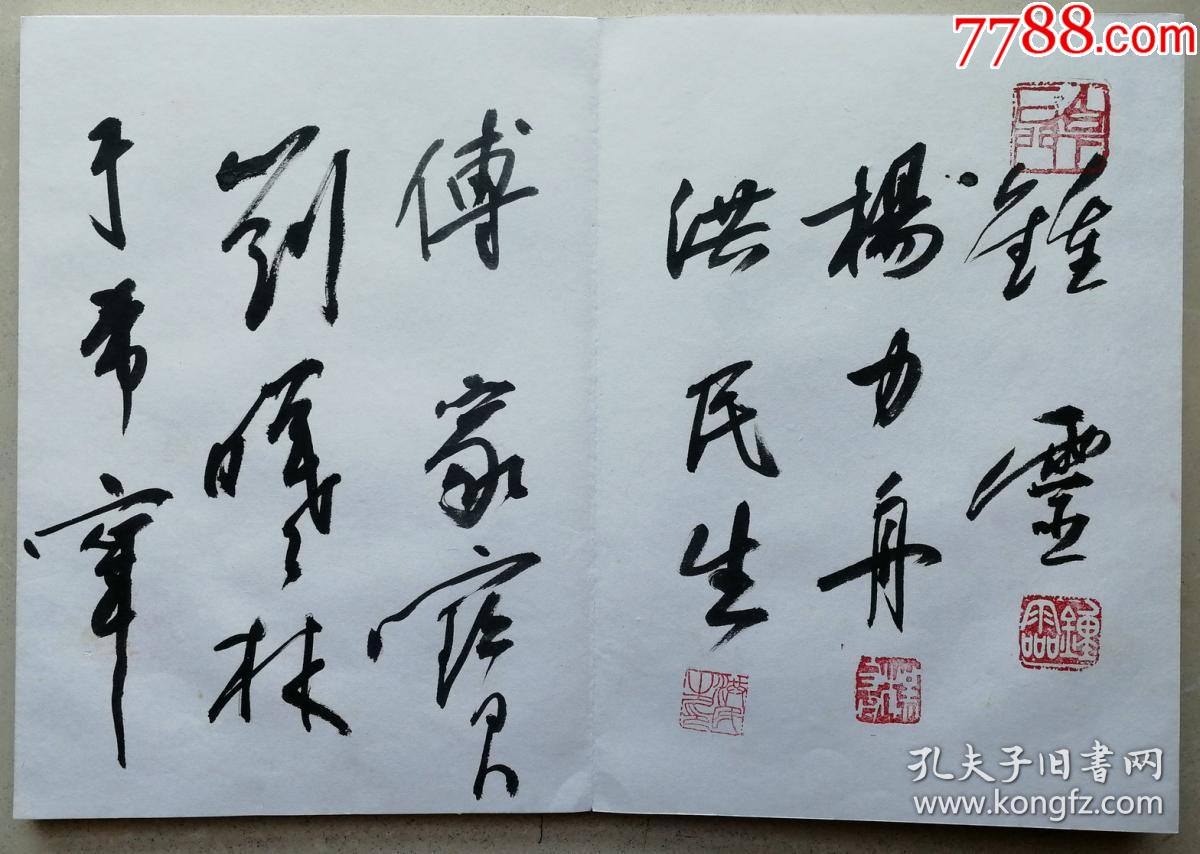 7788.com
鍾靈
楊力舟
洪民生
傅家寶
劉曦林
于希寧
鍾靈
孔夫子旧書网
www.kongfz.com